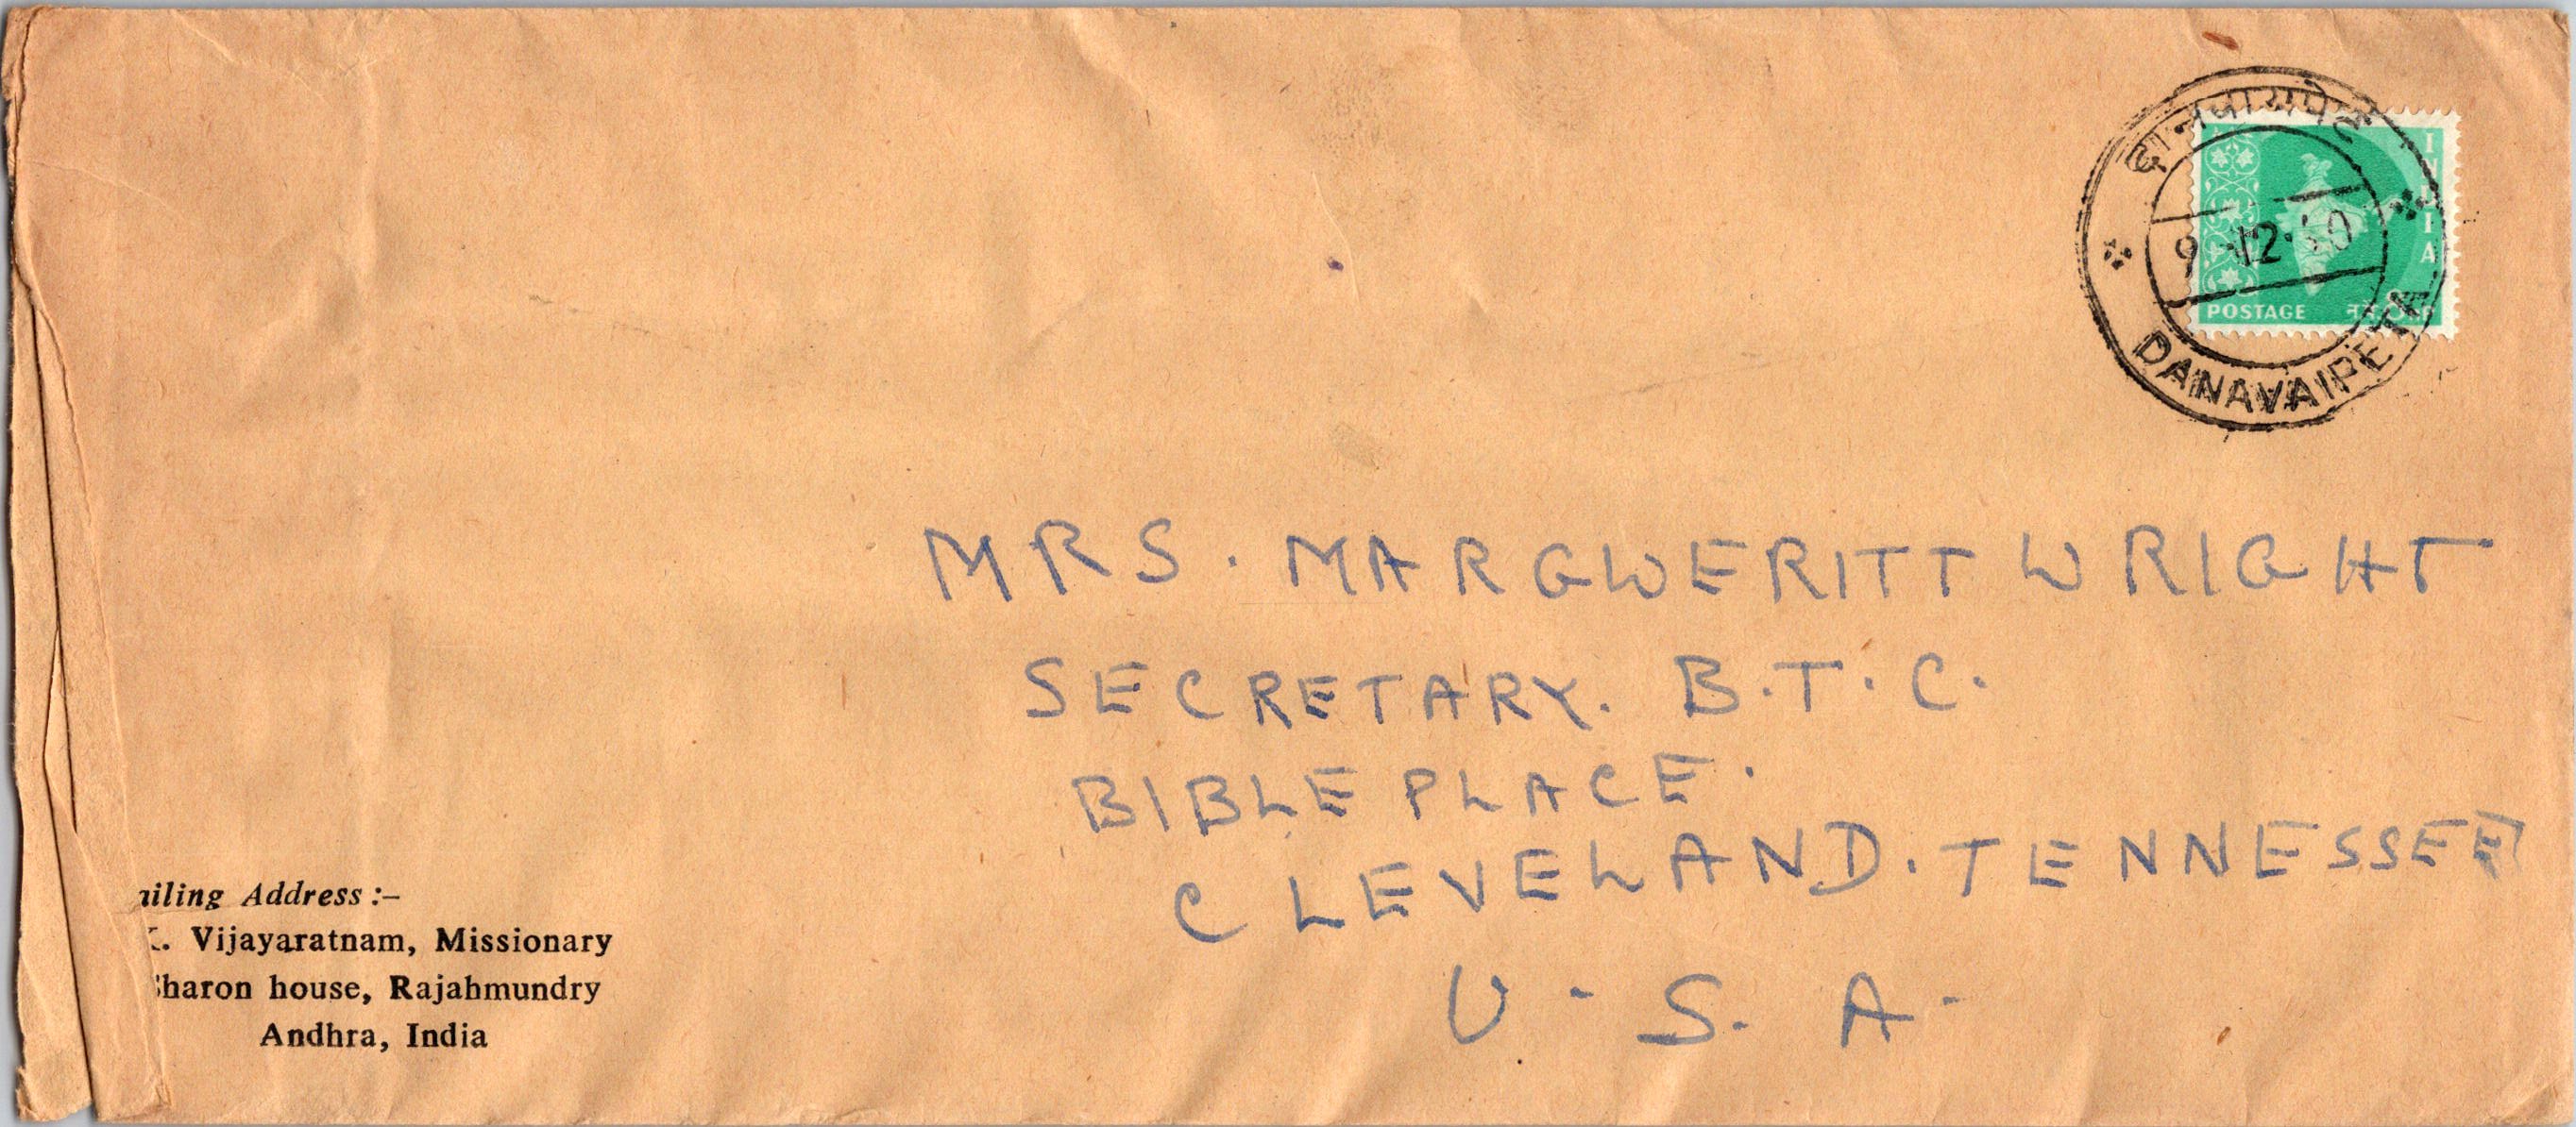 दानवायपेट
INDIA
9 12 60
POSTAGE
DANAVAIPETA
MRS. MARGWERITT WRIGHT
SECRETARY. B.T.C.
BIBLE PLACE.
CLEVELAND. TENNESSEE
U.S.A.
ailing Address :–
K. Vijayaratnam, Missionary
Sharon house, Rajahmundry
Andhra, India